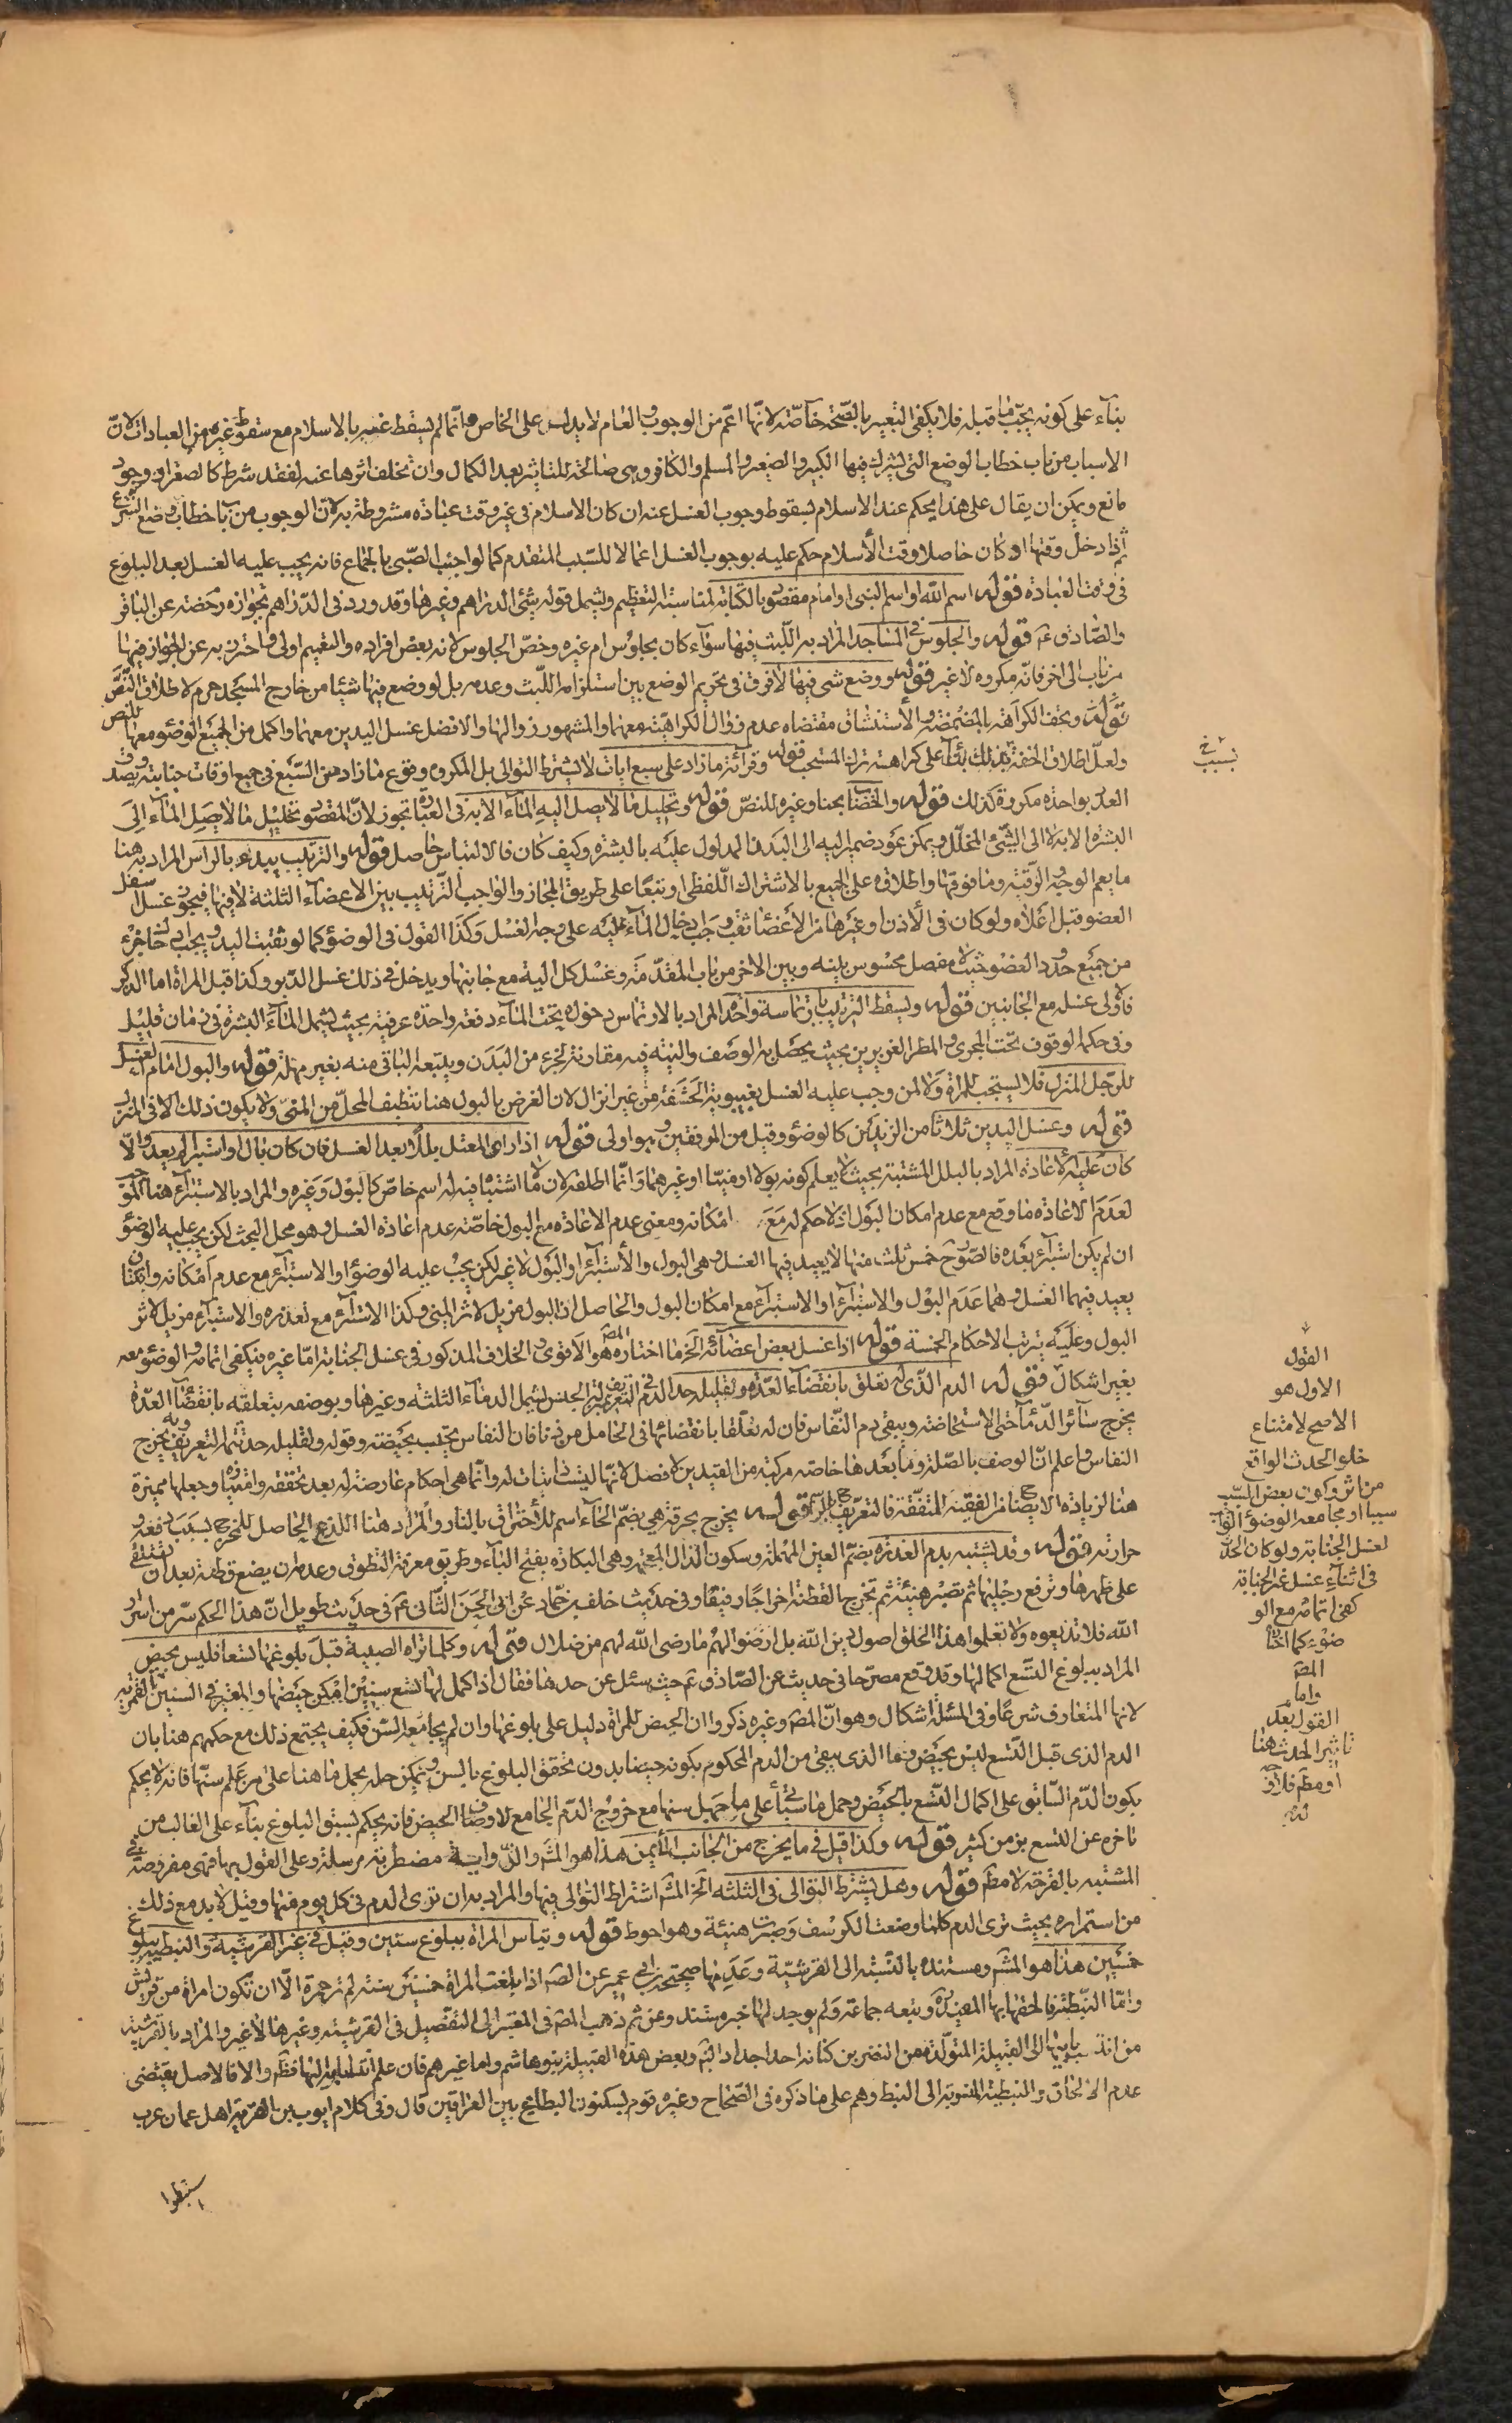 بناء على كونه يجبّ ما قبله فلا يكفى التعبير بالصّحة خاصّة لانّها اعمّ من الوجوب والعام لا يدل على الخاص وانّما لم يسقط غسله بالاسلام مع سقوط غيره من العبادات لانّ
الاسباب من باب خطاب الوضع التى يشترك فيها الكبير والصغير والمسلم والكافر وهى صالحة للتاثير بعد الكمال وان تخلف اثرها عنه لفقد شرط كالصغر او وجود
مانع ويمكن ان يقال على هذا يحكم عند الاسلام بسقوط وجوب الغسل عنه ان كان الاسلام فى غير وقت عبادة مشروطة به لان الوجوب من باب خطاب وضع الشرع
ثم اذا دخل وقتها او كان حاصلا وقت الأسلام حكم عليه بوجوب الغسل اعمالا للسّبب المتقدم كما لو اجنب الصّبى بالجماع فانه يجب عليه الغسل بعد البلوغ
فى وقت العبادة قوله اسم الله او اسم النبى او امام مقصود بالكتابة لمناسبة التعظيم ويشمل قوله شئ الدراهم وغيرها وقد ورد فى الدراهم بجوازه رخصة عن الباقر
والصّادق ع قوله والجلوس فى المساجد المراد به اللّبث فيها سواء كان بجلوس ام غيره وخصّ الجلوس لانه بعض افراده والتعميم اولى واحترز به عن الجواز فيها
من باب الى اخر فانّه مكروه لا غير قوله ووضع شئ فيها لا فرق فى تحريم الوضع بين استلزامه اللّبث وعدمه بل لو وضع فيها شيئا من خارج المسجد حرم لاطلاق النصّ
قوله ويخفّ الكراهة بالمضمضة والأستنشاق مقتضاه عدم زوال الكراهية معهما والمشهور زوالها والافضل غسل اليدين معهما واكمل من الجميع الوضوء معهما للنص
ولعلّ اطلاق الخفة بذلك بناء على كراهته ترك المستحب قوله وقرائة ما زاد على سبع ايات لا يشترط التوالى بل المكروه وقوع ما زاد من السّبع فى جميع اوقات جنابته ويصدق
العدد بواحدة مكررة كذلك قوله والخضاب بحنا وغيره للنصّ قوله وتخليل ما لا يصل اليه الماء الا به فى العبارة تجوز لانّ المقصود تخليل ما لا يصل الماء الى
البشرة الا به لا الى الشّئ المخلّل ويمكن عود ضمير اليه الى البدن المدلول عليه بالبشرة وكيف كان فالالتباس حاصل قوله والترتيب يبدء بالراس المراد به هنا
ما يعم الوجه والرّقبة وما فوقها واطلاقه على الجميع بالاشتراك اللّفظى او تبعًا على طريق المجاز والواجب الترتيب بين الاعضاء الثلثة لا فيها فيجوز غسل اسفل
العضو قبل اعلاه ولو كان فى الأذن او غيرها من الأعضاء ثقب وجب ادخال الماء عليه على وجه الغسل وكذا القول فى الوضوء كما لو ثقبت اليد ويجب ادخال جزء
من جميع حدود العضو حيث لا مفصل محسوس بينه وبين الاخر من باب المقدّمة وغسل كل الية مع جانبها ويدخل فى ذلك غسل الدّبر وكذا قبل المراة اما الذكر
فالاولى غسله مع الجانبين قوله ويسقط الترتيب بارتماسة واحدة المراد بالارتماس دخوله تحت الماء دفعة واحدة عرفية بحيث يشمل الماء البشرة فى زمان قليل
وفى حكمه الوقوف تحت المجرى والمطر الغزيرين بحيث يحصل به الوصف والنية فيه مقارنة لجزء من البدن ويتبعه الباقى منه بغير مهلة قوله والبول امام الغسل
للرّجل المنزل فلا يستحب للمراة ولا لمن وجب عليه الغسل بغيبوبة الحشفة من غير انزال لان الغرض بالبول هنا تنظيف المحلّ من المنىّ ولا يكون ذلك الا فى المنزل
قوله وغسل اليدين ثلاثا من الزندين كالوضوء وقيل من المرفقين وهو اولى قوله اذا راى المغتسل بللا بعد الغسل فان كان بال او استبرا لم يعد والّا
كان عليه الأعادة المراد بالبلل المشتبه بحيث لا يعلم كونه بولا او منيّا او غيرهما وانّما اطلقه لان ما لا اشتباه فيه له اسم خاصّ كالبول وغيره والمراد بالاستبراء هنا الموجب
لعدم الاعادة ما وقع مع عدم امكان البول اذ لا حكم له مع امكانه ومعنى عدم الاعادة مع البول خاصّة عدم اعادة الغسل وهو محل البحث لكن يجب عليه الوضوء
ان لم يكن استبرء بعده فالصّور ح خمس ثلث منها لا يعيد فيها الغسل وهى البول والأستبراء او البول لا غير لكن يجب عليه الوضوء او الاستبراء مع عدم امكانه واثنتان
يعيد فيهما الغسل وهما عدم البول والاستبراء او الاستبراء مع امكان البول والحاصل ان البول مزيل لاثر المنى وكذا الاستبراء مع تعذره والاستبراء مزيل لاثر
البول وعليه يترتب الاحكام الخمسة قوله اذا غسل بعض اعضائه الخ ما اختاره المصّ هو الاقوى والخلاف المذكور فى غسل الجنابة امّا غيره فيكفى اتمامه والوضوء معه
بغير اشكال قوله الدم الّذى له تعلق بانقضاء العدّة ولقليله حد الدم فى التعريف بمنزلة الجنس يشمل الدماء الثلثة وغيرها وبوصفه بتعلقه بانقضاء العدّة
يخرج سائر الدّماء حتى الاستحاضة ويبقى دم النّفاس فان له تعلّقا بانقضائها فى الحامل من زنا فان النفاس يحتسب بحيضة وقوله ولقليله حد تتمّة التعريف وبه يخرج
النفاس واعلم انّ الوصف بالصّلة وما بعدها خاصّة مركبة من القيدين لا فصل لانّها ليست ذاتيات له وانّما هى احكام عارضة له بعد تحققه وامتيازه وجعلها مميزة
هنا لزيادة الايضاح من الفقيه المتفقّه فالتعريف ح بالرّسم قوله يخرج بحرقة هى بضمّ الحاء اسم للأحتراق بالنار والمراد هنا اللذع الحاصل للمخرج بسبب دفعه و
حرارته قوله وقد يشتبه بدم العذرة بضمّ العين المهملة وسكون الذال المعجمة وهى البكارة بفتح الباء وطريق معرفة التطوق وعدمه ان يضع قطنة بعد ان تستلقى
على ظهرها وترفع رجليها ثم تصبر هنيئة ثم تخرج القطنة اخراجًا رفيقًا وفى حديث خلف بن حمّاد عن ابى الحسن الثّانى ع فى حديث طويل انّ هذا الحكم سرّ من اسرار
الله فلا تذيعوه ولا تعلموا هذا الخلق اصول دين الله بل ارضوا لهم ما رضى الله لهم من ضلال قوله وكلما تراه الصبية قبل بلوغها تسعا فليس بحيض
المراد ببلوغ التّسع اكمالها وقد وقع مصرّحا فى حديث عن الصّادق ع حيث سئل عن حدها فقال اذا كمل لها تسع سنين امكن حيضها والمعتبر فى السنين القمريه
لانها المتعارف شرعًا وفى المسئلة اشكال وهو انّ المصّ وغيره ذكروا ان الحيض للمراة دليل على بلوغها وان لم يجامعه السّن فكيف يجتمع ذلك مع حكمهم هنا بان
الدم الذى قبل التّسع ليس بحيض وما الذى يبقى من الدم المحكوم بكونه حيضا بدون تحقق البلوغ بالسن ويمكن حله بحمل ما هنا على من علم سنّها فانه لا يحكم
بكون الدّم السّابق على اكمال التّسع بالحيض وحمل ما سيأتى على ما جهل سنها مع خروج الدّم الجامع لاوصاف الحيض فانه يحكم بسبق البلوغ بناء على الغالب من
تاخره عن التسع بزمن كثير قوله وكذا قيل فى ما يخرج من الجانب الأيمن هذا هو المشهور والرّواية مضطربة مرسلة وعلى القول بها فهى مفروضة فى
المشتبه بالقرحة لا مطم قوله وهل يشترط التوالى فى الثلثة الخ المشهور اشتراط التوالى فيها والمراد به ان ترى الدم فى كل يوم منها وقيل لا بد مع ذلك
من استمراره بحيث ترى الدم كلما وضعت الكرسف وصبرت هنيئة وهو احوط قوله وتياس المراة ببلوغ ستين وقيل فى غير القرشية والنبطية ببلوغ
خمسين هذا هو المشهور ومستنده بالنّسبة الى القرشيّة وعدمها صحيحة ابن ابى عمير عن الصّ اذا بلغت المراة خمسين سنة لم تر حمرة الّا ان تكون امراة من قريش
وامّا النّبطيّة فالحقها بها المفيد ره وتبعه جماعة ولم يوجد لها خبر مسند ومن ثم ذهب المصّ فى المعتبر الى التفصيل فى القرشية وغيرها لا غير والمراد بالقرشية
من انتسب بابيها الى القبيلة المتولّدة من النضر بن كنانه احد اجداد النبى وبعض هذه القبيلة بنو هاشم واما غيرهم فان علم انتسابه اليها فظم والا فالاصل يقتضى
عدم الالحاق والنبطية المنسوبة الى النبط وهم على ما ذكره فى الصّحاح وغيره قوم يسكنون البطايح بين العراقين قال وفى كلام ايوب بن القرية اهل عمان عرب
استنبطوا
بسبب خ
القول
الاول هو
الاصح لامتناع
خلو الحدث الواقع
من اثر وكون بعض السّبب
سببا او مجامعة الوضوء
لغسل الجنابة ولو كان الحدث
فى اثناء غسل غير الجنابة
كفى اتمامه مع الو
ضوء كما اختاره
المصّ
واما
القول بعدم
تاثير الحدث هنا
او مطم فلا وجه
له منه